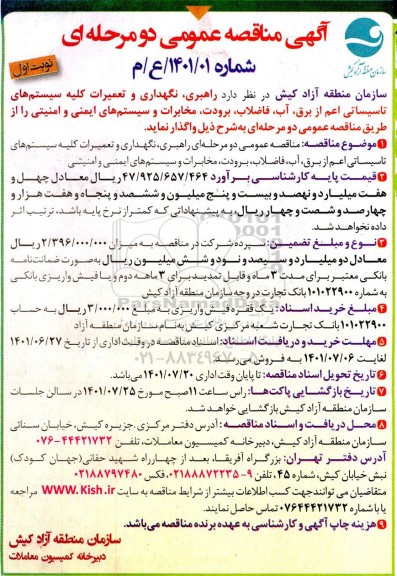 آگهی مناقصه عمومی دو مرحله ای
شماره ۱۴۰۱/۰۱/ع/م
سازمان منطقه آزاد کیش
نوبت اول
سازمان منطقه آزاد کیش در نظر دارد راهبری، نگهداری و تعمیرات کلیه سیستم‌های
تاسیساتی اعم از برق، آب، فاضلاب، برودت، مخابرات و سیستم‌های ایمنی و امنیتی را از
طریق مناقصه عمومی دو مرحله‌ای به شرح ذیل واگذار نماید.
۱ موضوع مناقصه: مناقصه عمومی دو مرحله‌ای راهبری، نگهداری و تعمیرات کلیه سیستم‌های
تاسیساتی اعم از برق، آب، فاضلاب، برودت، مخابرات و سیستم‌های ایمنی و امنیتی
۲ قیمت پایه کارشناسی برآورد ۴۷/۹۲۵/۶۵۷/۴۶۴ ریال معادل چهل و
هفت میلیارد و نهصد و بیست و پنج میلیون و ششصد و پنجاه و هفت هزار و
چهارصد و شصت و چهار ریال، به پیشنهاداتی که کمتر از نرخ پایه باشد، ترتیب اثر
داده نخواهد شد.
۳ نوع و مبلغ تضمین: سپرده شرکت در مناقصه به میزان ۲/۳۹۶/۰۰۰/۰۰۰ ریال
معادل دو میلیارد و سیصد و نود و شش میلیون ریال به‌صورت ضمانت‌نامه
بانکی معتبر برای مدت ۳ ماه و قابل تمدید برای ۳ ماهه دوم و یا فیش واریزی بانکی
به شماره ۱۰۱۰۲۲۹۰۰ بانک تجارت در وجه سازمان منطقه آزاد کیش
۴ مبلغ خرید اسناد: یک فقره فیش واریزی به مبلغ ۳/۰۰۰/۰۰۰ ریال به حساب
۱۰۱۰۲۲۹۰۰ بانک تجارت شعبه مرکزی کیش به‌نام سازمان منطقه آزاد
۵ مهلت خرید و دریافت اسناد: اسناد مناقصه در وقت اداری از تاریخ ۱۴۰۱/۰۶/۲۷
لغایت ۱۴۰۱/۰۷/۰۶ به فروش می‌رسد.
۶ تاریخ تحویل اسناد مناقصه: تا پایان وقت اداری ۱۴۰۱/۰۷/۲۰ می‌باشد.
۷ تاریخ بازگشایی پاکت‌ها: راس ساعت ۱۱ صبح مورخ ۱۴۰۱/۰۷/۲۵ در سالن جلسات
سازمان منطقه آزاد کیش بازگشایی خواهد شد.
۸ محل دریافت و اسناد مناقصه: آدرس دفتر مرکزی: جزیره کیش، خیابان سنائی
سازمان منطقه آزاد کیش، دبیرخانه کمیسیون معاملات، تلفن ۴۴۴۲۱۷۳۲-۰۷۶
آدرس دفتر تهران: بزرگراه آفریقا، بعد از چهارراه شهید حقانی(جهان کودک)
نبش خیابان کیش، شماره ۴۵، تلفن ۹-۰۲۱۸۸۸۷۲۲۳۵ فکس ۰۲۱۸۸۷۹۷۴۸۰
متقاضیان می توانند جهت کسب اطلاعات بیشتر از شرایط مناقصه به سایت WWW.Kish.ir مراجعه
یا با شماره ۰۷۶۴۴۴۲۱۷۳۲ تماس حاصل نمایند.
۹ هزینه چاپ آگهی و کارشناسی به عهده برنده مناقصه می‌باشد.
سازمان منطقه آزاد کیش
دبیرخانه کمیسیون معاملات